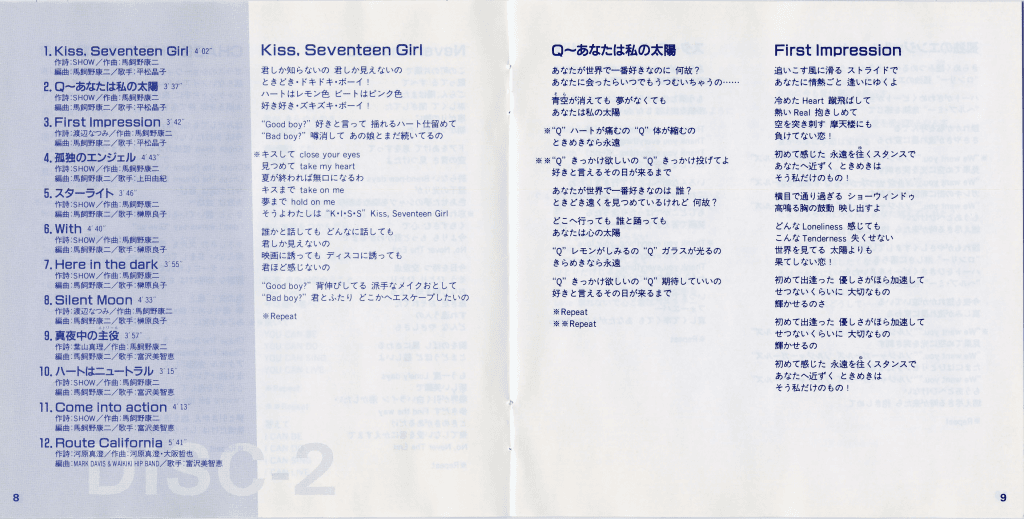 1. Kiss, Seventeen Girl 4′02″
作詩:SHOW／作曲:馬飼野康二
編曲:馬飼野康二／歌手:平松晶子
2. Q〜あなたは私の太陽 3′37″
作詩:SHOW／作曲:馬飼野康二
編曲:馬飼野康二／歌手:平松晶子
3. First Impression 3′42″
作詩:渡辺なつみ／作曲:馬飼野康二
編曲:馬飼野康二／歌手:平松晶子
4. 孤独のエンジェル 4′43″
作詩:SHOW／作曲:馬飼野康二
編曲:馬飼野康二／歌手:上田由紀
5. スターライト 3′46″
作詩:SHOW／作曲:馬飼野康二
編曲:馬飼野康二／歌手:榊原良子
6. With 4′40″
作詩:SHOW／作曲:馬飼野康二
編曲:馬飼野康二／歌手:榊原良子
7. Here in the dark 3′55″
作詩:SHOW／作曲:馬飼野康二
編曲:馬飼野康二／歌手:榊原良子
8. Silent Moon 4′33″
作詩:渡辺なつみ／作曲:馬飼野康二
編曲:馬飼野康二／歌手:榊原良子
9. 真夜中の主役 3′57″
作詩:葉山真理／作曲:馬飼野康二
編曲:馬飼野康二／歌手:富沢美智恵
10. ハートはニュートラル 3′15″
作詩:SHOW／作曲:馬飼野康二
編曲:馬飼野康二／歌手:富沢美智恵
11. Come into action 4′13″
作詩:SHOW／作曲:馬飼野康二
編曲:馬飼野康二／歌手:富沢美智恵
12. Route California 5′41″
作詩:河原真澄／作曲:河原真澄・大阪哲也
編曲:MARK DAVIS & WAIKIKI HIP BAND／歌手:富沢美智恵
DISC-2
8
Kiss, Seventeen Girl
君しか知らないの 君しか見えないの
ときどき・ドキドキ・ボーイ！
ハートはレモン色 ビートはピンク色
好き好き・ズキズキ・ボーイ！
“Good boy?” 好きと言って 揺れるハート仕留めて
“Bad boy?” 噂消して あの娘とまだ続いてるの
※キスして close your eyes
見つめて take my heart
夏が終われば無口になるわ
キスまで take on me
夢まで hold on me
そうよわたしは “K・I・S・S” Kiss, Seventeen Girl
誰かと話しても どんなに話しても
君しか見えないの
映画に誘っても ディスコに誘っても
君ほど感じないの
“Good boy?” 背伸びしてる 派手なメイクおとして
“Bad boy?” 君とふたり どこかへエスケープしたいの
※Repeat
Q〜あなたは私の太陽
あなたが世界で一番好きなのに 何故？
あなたに会ったらいつでもうつむいちゃうの……
青空が消えても 夢がなくても
あなたは私の太陽
※“Q” ハートが痛むの “Q” 体が縮むの
ときめきなら永遠
※※“Q” きっかけ欲しいの “Q” きっかけ投げてよ
好きと言えるその日が来るまで
あなたが世界で一番好きなのは 誰？
ときどき遠くを見つめているけれど 何故？
どこへ行っても 誰と踊っても
あなたは心の太陽
“Q” レモンがしみるの “Q” ガラスが光るの
きらめきなら永遠
“Q” きっかけ欲しいの “Q” 期待していいの
好きと言えるその日が来るまで
※Repeat
※※Repeat
First Impression
追いこす風に滑る ストライドで
あなたに情熱ごと 逢いにゆくよ
冷めた Heart 蹴飛ばして
熱い Real 抱きしめて
空を突き刺す 摩天楼にも
負けてない恋！
初めて感じた 永遠を往くスタンスで
あなたへ近ずく ときめきは
そう私だけのもの！
横目で通り過ぎる ショーウィンドゥ
高鳴る胸の鼓動 映し出すよ
どんな Loneliness 感じても
こんな Tenderness 失くせない
世界を見てる 太陽よりも
果てしない恋！
初めて出逢った 優しさがほら加速して
せつないくらいに 大切なもの
輝かせるのさ
初めて出逢った 優しさがほら加速して
せつないくらいに 大切なもの
輝かせるの
初めて感じた 永遠を往くスタンスで
あなたへ近ずく ときめきは
そう私だけのもの！
9